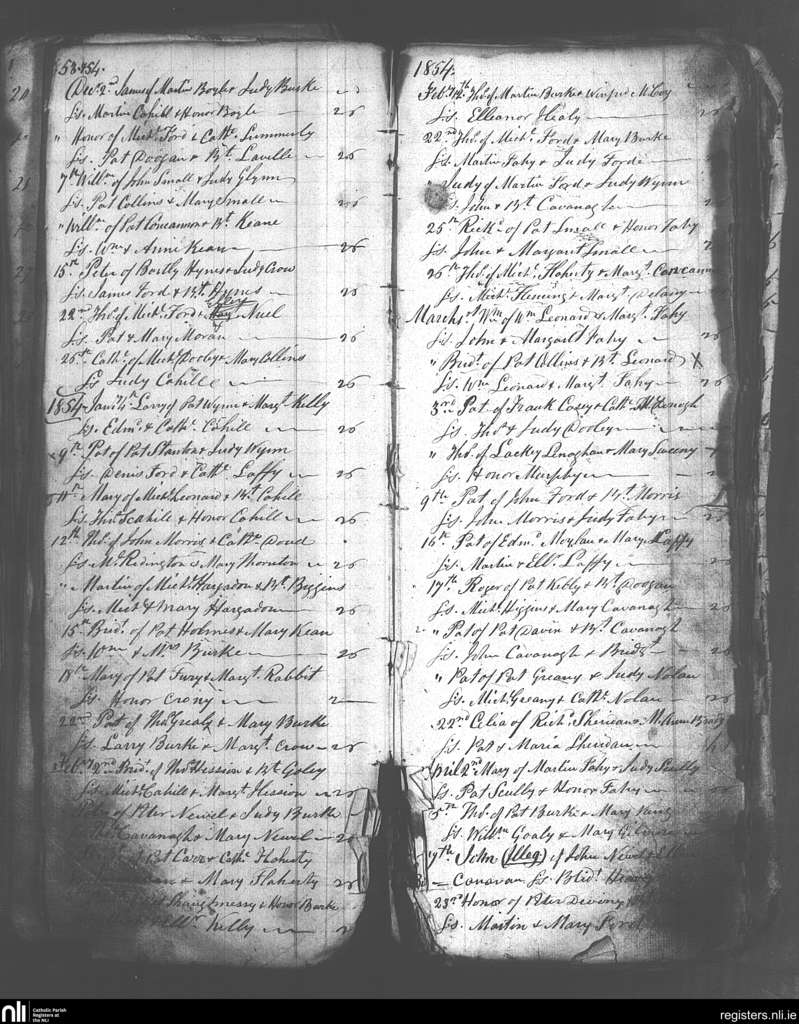 53 & 54.
Decr 2nd James of Martin Boyle & Judy Burke
Ss. Martin Cahill & Honor Boyle 2s
" Honor of Michl. Ford & Cathe. Lummerly
Ss. Pat Doogan & Bt. Laville 2s
7th Willm. of John Small & Judy Glynn
Ss. Pat Collins & Mary Small 2s
" Willm. of Pat Concannon & Bt. Keane
Ss. Wm & Anne Kean 2s
15th Peter of Bartly Hynes & Judy Crow
Ss. James Ford & Bt. Hynes 2s
22nd Tho. of Michl. Ford & Mary Nuel
Ss. Pat & Mary Moran 2s
26th Cathe. of Michl. Dooley & Mary Collins
Ss Judy Cahill 2s
1854 Jany 4th Larry of Pat Wynn & Margt. Kelly
Ss. Edmd. & Cathe. Cahill 2s
9th Pat of Pat Stanton & Judy Wynn
Ss. Denis Ford & Cathe. Laffy 2s
11th Mary of Michl. Leonard & Bt. Cahill
Ss. Thos. Scahill & Honor Cahill 2s
12th Tho. of John Morris & Cathn Doud
Ss Ml. Redington & Mary Thornton 2s
" Martin of Michl. Hargadon & Bt. Boggins
Ss. Michl & Mary Hargadon 2s
15th Bridt. of Pat Holmes & Mary Kean
Ss. Wm & Mrs Burke 2s
18th Mary of Pat Fury & Margt. Rabbit
Ss. Honor Creny 2
22nd Pat of Thos. Grealy & Mary Burke
Ss. Larry Burke & Margt. Crow 2s
Feby. 2nd Bridt. of Thos Hession & Bt. Goley
Ss. Michl Cahill & Margt Hession 2s
of Peter Newel & Judy Burke
Cavanagh & Mary Newel 2
of Pat Carr & Cathe. Flaherty
& Mary Flaherty 2s
Shaughnessy & Honor Burke
Kelly
1854.
Feby. 14th Tho. of Martin Burke & Winfred McCoy
Ss. Elleanor Healy
22nd Tho. of Michl. Ford & Mary Burke
Ss. Martin Fahy & Judy Forde
Judy of Martin Ford & Judy Wynn
Ss. John & Bt. Cavanagh
25th Richd. of Pat Small & Honor Fahy
Ss. John & Margaret Small
26th Tho. of Michl. Flaherty & Margt. Concannon
Ss. Michl. Fleming & Margt. Delany
March 1st Wm of Wm Leonard & Margt. Fahy
Ss. John & Margaret Fahy 2s
" Bridt. of Pat Collins & Bt. Leonard X
Ss. Wm Leonard & Margt. Fahy 2s
3rd Pat of Frank Casey & Cathe. McDonogh
Ss. Thos & Judy Dooley
" Tho. of Lackey Lenaghan & Mary Sweeny
Ss. Honor Murphy
9th Pat of John Ford & Bt. Morris
Ss. John Morris & Judy Fahy 2s
16th Pat of Edmd. Moylan & Mary Laffy
Ss. Martin & Ell. Laffy
17th Roger of Pat Kelly & Bt. Doogan
Ss. Michl. Higgins & Mary Cavanagh 2s
" Pat of Pat Davin & Bt. Cavanagh
Ss. John Cavanagh & Bridgt
" Pat of Pat Greany & Judy Nolan
Ss. Michl. Greany & Cathe. Nolan 2s
22nd Celia of Richd. Sheridan &
Ss. Pat & Maria Sheridan
April 2nd Mary of Martin Fahy & Judy Scully
Ss. Pat Scully & Honor Fahy
5th Tho. of Pat Burke & Mary King
Ss. Willm Goaly & Mary
9th John (Illeg) of John Newel &
Canavan Ss. Bridt.
23rd Honor of Peter
Ss. Martin & Mary
nli Catholic Parish
Registers at
the NLI
registers.nli.ie